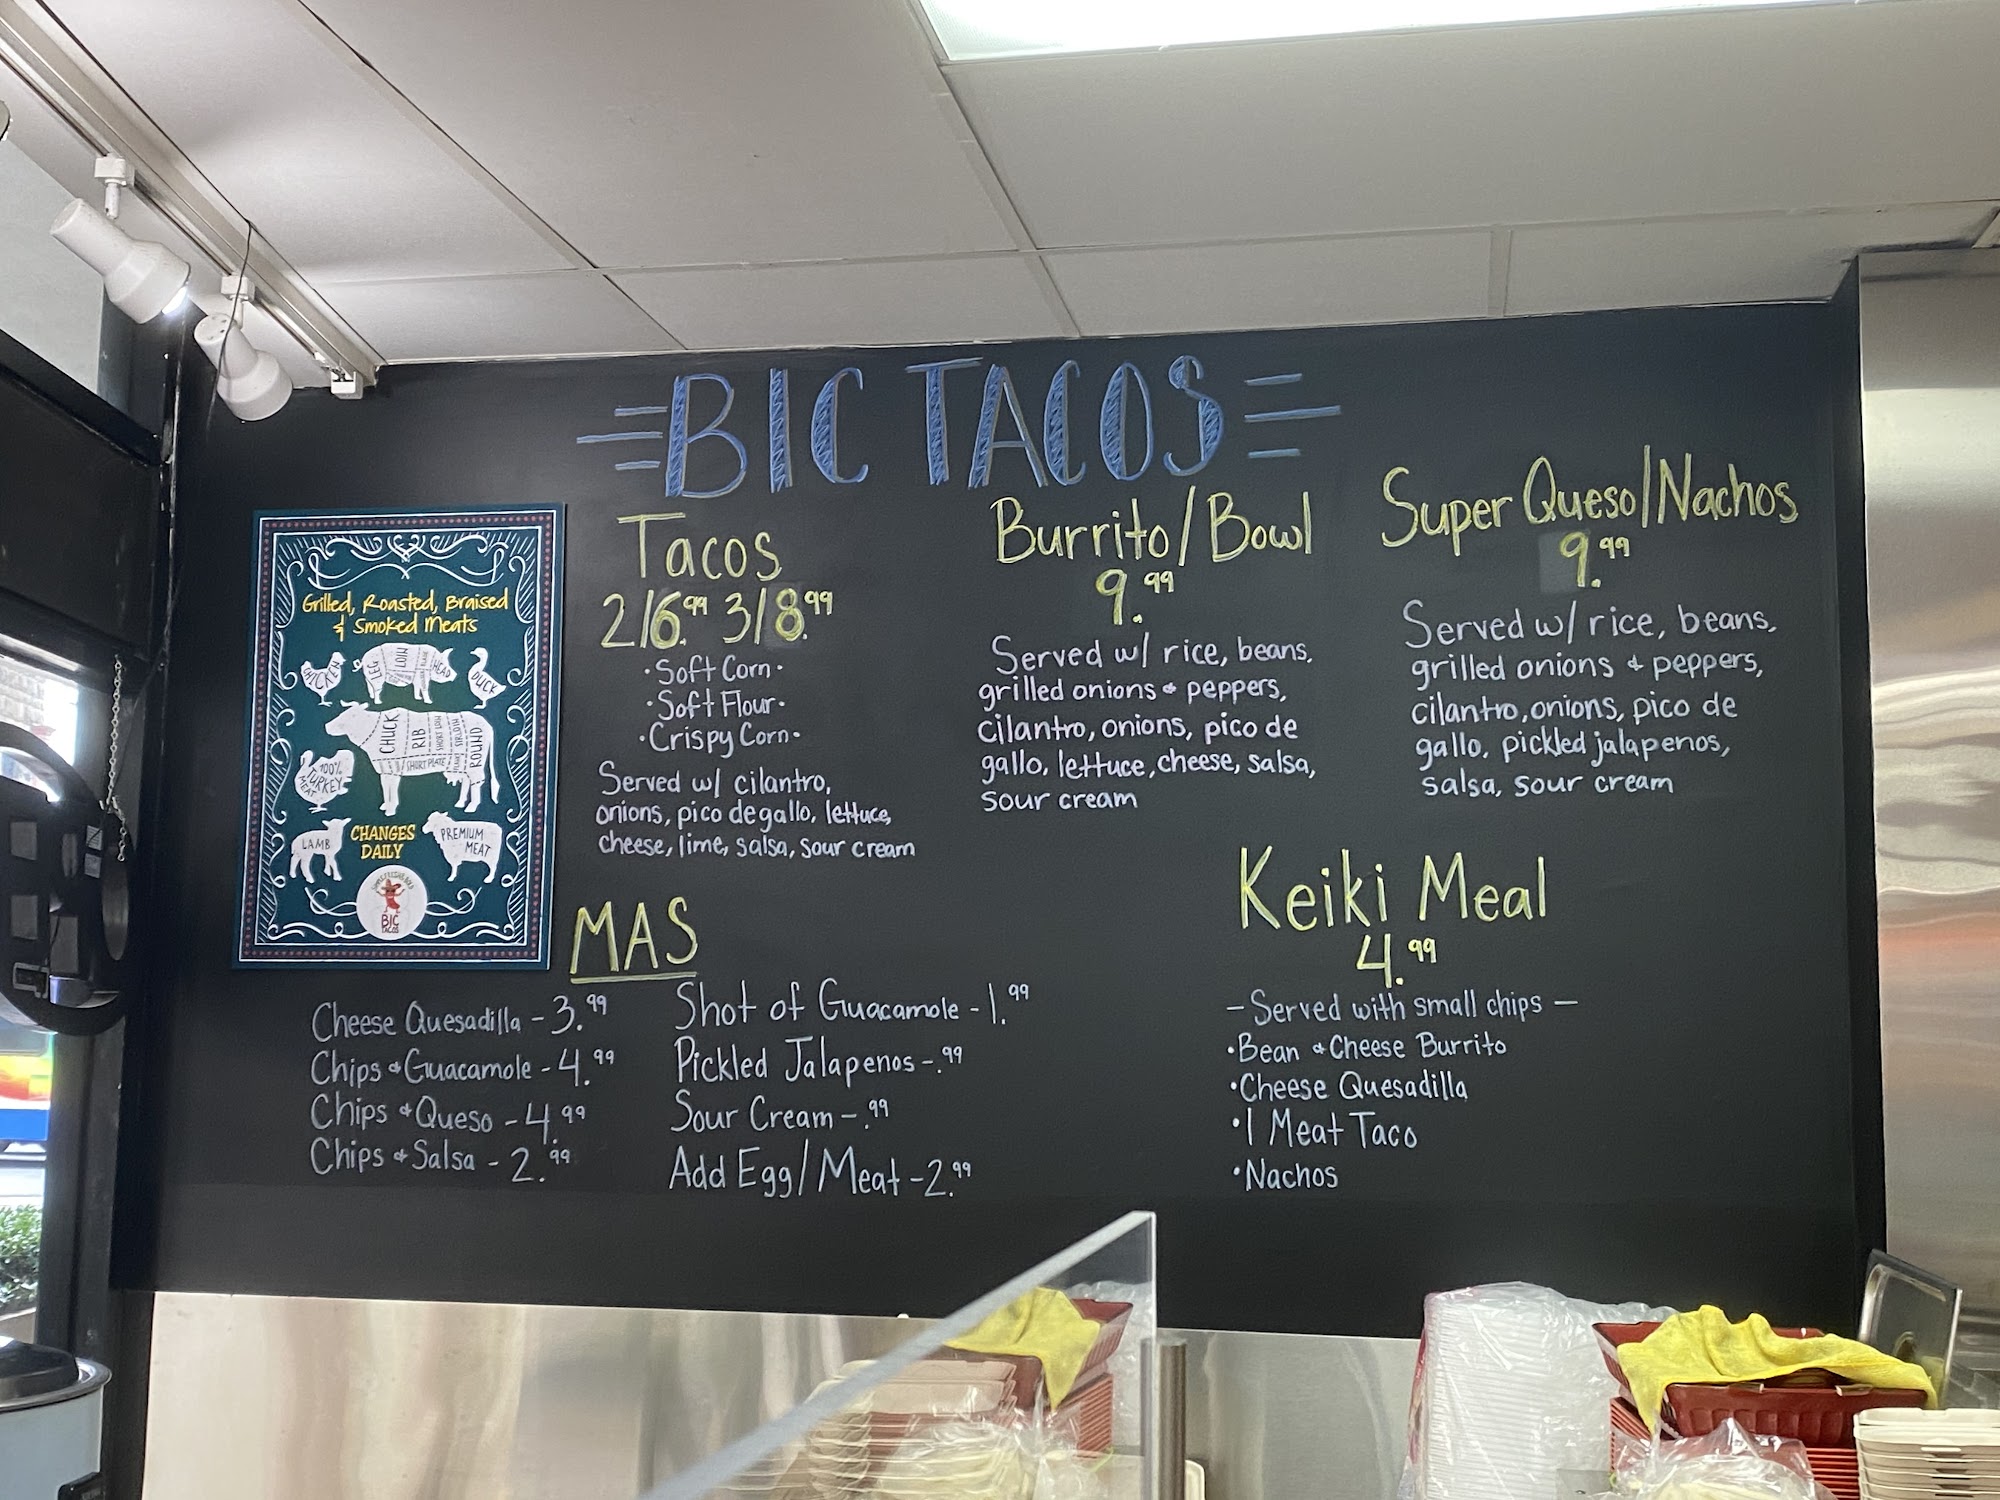 BIC TACOS
Grilled, Roasted, Braised
& Smoked Meats
CHICKEN
LEG
LOIN
HEAD
DUCK
CHUCK
RIB
SHORT LOIN
SIRLOIN
ROUND
SHORT PLATE
FLANK
100%
TURKEY
MEAT
LAMB
CHANGES
DAILY
PREMIUM
MEAT
BIC
TACOS
Tacos
2/6.99 3/8.99
·Soft Corn·
·Soft Flour·
·Crispy Corn·
Served w/ cilantro,
onions, pico de gallo, lettuce,
cheese, lime, salsa, sour cream
Burrito/Bowl
9.99
Served w/ rice, beans,
grilled onions & peppers,
cilantro, onions, pico de
gallo, lettuce, cheese, salsa,
sour cream
Super Queso/Nachos
9.99
Served w/ rice, beans,
grilled onions & peppers,
cilantro, onions, pico de
gallo, pickled jalapenos,
salsa, sour cream
MAS
Cheese Quesadilla - 3.99
Chips & Guacamole - 4.99
Chips & Queso - 4.99
Chips & Salsa - 2.99
Shot of Guacamole - 1.99
Pickled Jalapenos - .99
Sour Cream - .99
Add Egg/Meat - 2.99
Keiki Meal
4.99
- Served with small chips -
·Bean & Cheese Burrito
·Cheese Quesadilla
·1 Meat Taco
·Nachos